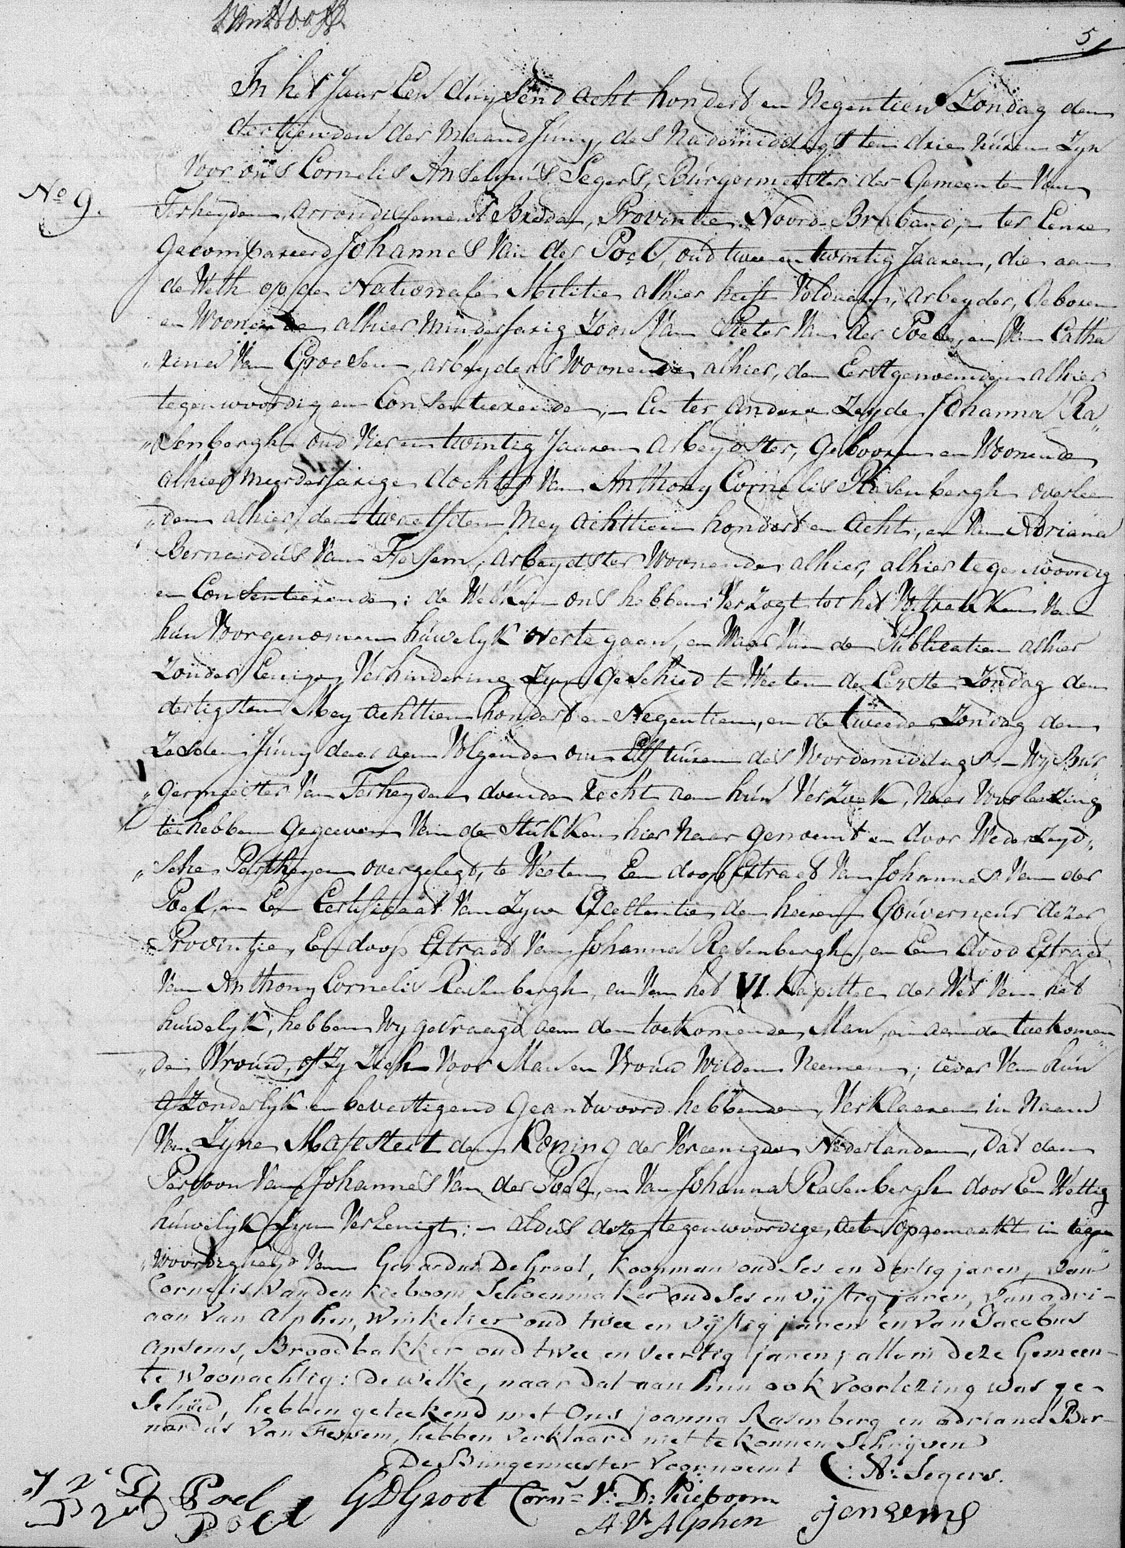 5
In het Jaar Een duijsend acht hondert en Negentien Zondag den
dertienden der maand Juny, des Nademiddags ten drie uuren Zyn
Voor ons Cornelis Anselmus Segers, Burgermeester der Gemeenten Van
No 9.
Terheyden, arrondissement Breda, Provintie Noord-Braband, ter Eenre
Gecompareerd Johannes Van der Poel, oud twee en twintig Jaaren, die aan
de Weth op de Nationale Militie alhier heeft Voldaan, arbeyder, Geboren
en Woonende alhier minderjarig Zoon Van Pieter Van der Poel, en Van Catha
"rina Van Groesen, arbeyders Woonende alhier, den Eerstgenoemden alhier
tegenwoordig en Consenteerende, - En ter andere Zeyde Johanna Ra"
"senbergh oud Vier en twintig Jaaren arbeydster, Gebooren en Woonende
alhier meerderjarige dochter Van Anthony Cornelis Rasenbergh overlee
"den alhier den twaelfden Mey achttien hondert en acht, en Van Adriana
Bernardus Van Fessem, arbeydster Woonende alhier, alhier tegenwoordig
en Consenteerende; de Welken ons hebben Verzogt tot het Voltrekken Van
hun Voorgenomen huwelyk over te gaan, en Waar Van de Publicatien alhier
Zonder Eenige Verhindering Zyn Geschied te Weeten de Eerste Zondag den
dertigsten Mey achttien hondert en Negentien, en de tweede Zondag den
Zesden Juny daar aan Volgende om Elf uuren des Voordemiddags - Wy Bur"
"germeester Van Terheyden doende Recht aan hun Verzoek, Naer Voorleezing
te hebben gegeven Van de Stukken hier naer genoemt en door Wederzyd"
"sche Parthyen overgelegt, te Weeten Een doop Extract Van Johannes Van der
Poel, en Een Certificaat Van Zyne Excellentie den heere Gouverneur dezer
Provintie, Een doop Extract Van Johanna Rasenbergh, en Een dood Extract
Van Anthony Cornelis Rasenbergh, en Van het VI. Kapittel der Wet Van het
huwelyk, hebben Wy gevraagd aan den toekomenden Man, en aan de toekomen
"de Vrouw, of Zy Zich Voor Man en Vrouw Wilden Neemen; ieder Van hun
afzonderlyk en bevestigend geantwoord hebbende, Verklaaren in Naam
Van Zyne Majesteit den Koning der Vereenigde Nederlanden, dat den
Persoon Van Johannes Van der Poel, en Van Johanna Rasenbergh door Een Wettig
huwelyk Zyn Vereenigt; - aldus deze tegenwoordige acte opgemaakt in tegen
"woordigheid Van Gerardus De Groot, Koopman oud Ses en dertig jaren, van
Cornelis Van den Kieboom Schoenmaker oud Ses en vyftig jaren, van adri-
aan Van Alphen, Winkelier oud twee en vyftig jaren en van Jacobus
Ansems, Broodbakker oud twee en veertig jaren, allen in deze Gemeen-
te Woonachtig: De welke, naar dat aan hun ook voorlezing was ge-
Schied, hebben geteekend met Ons joanna Rasenberg en adriana Ber-
nardus Van Fessem, hebben verklaard niet te konnen Schryven
De Burgemeester Voornoemt C: A: Segers.
Poel GDGroot Corn.s V: D: Kieboom
Poel A V Alphen jansems